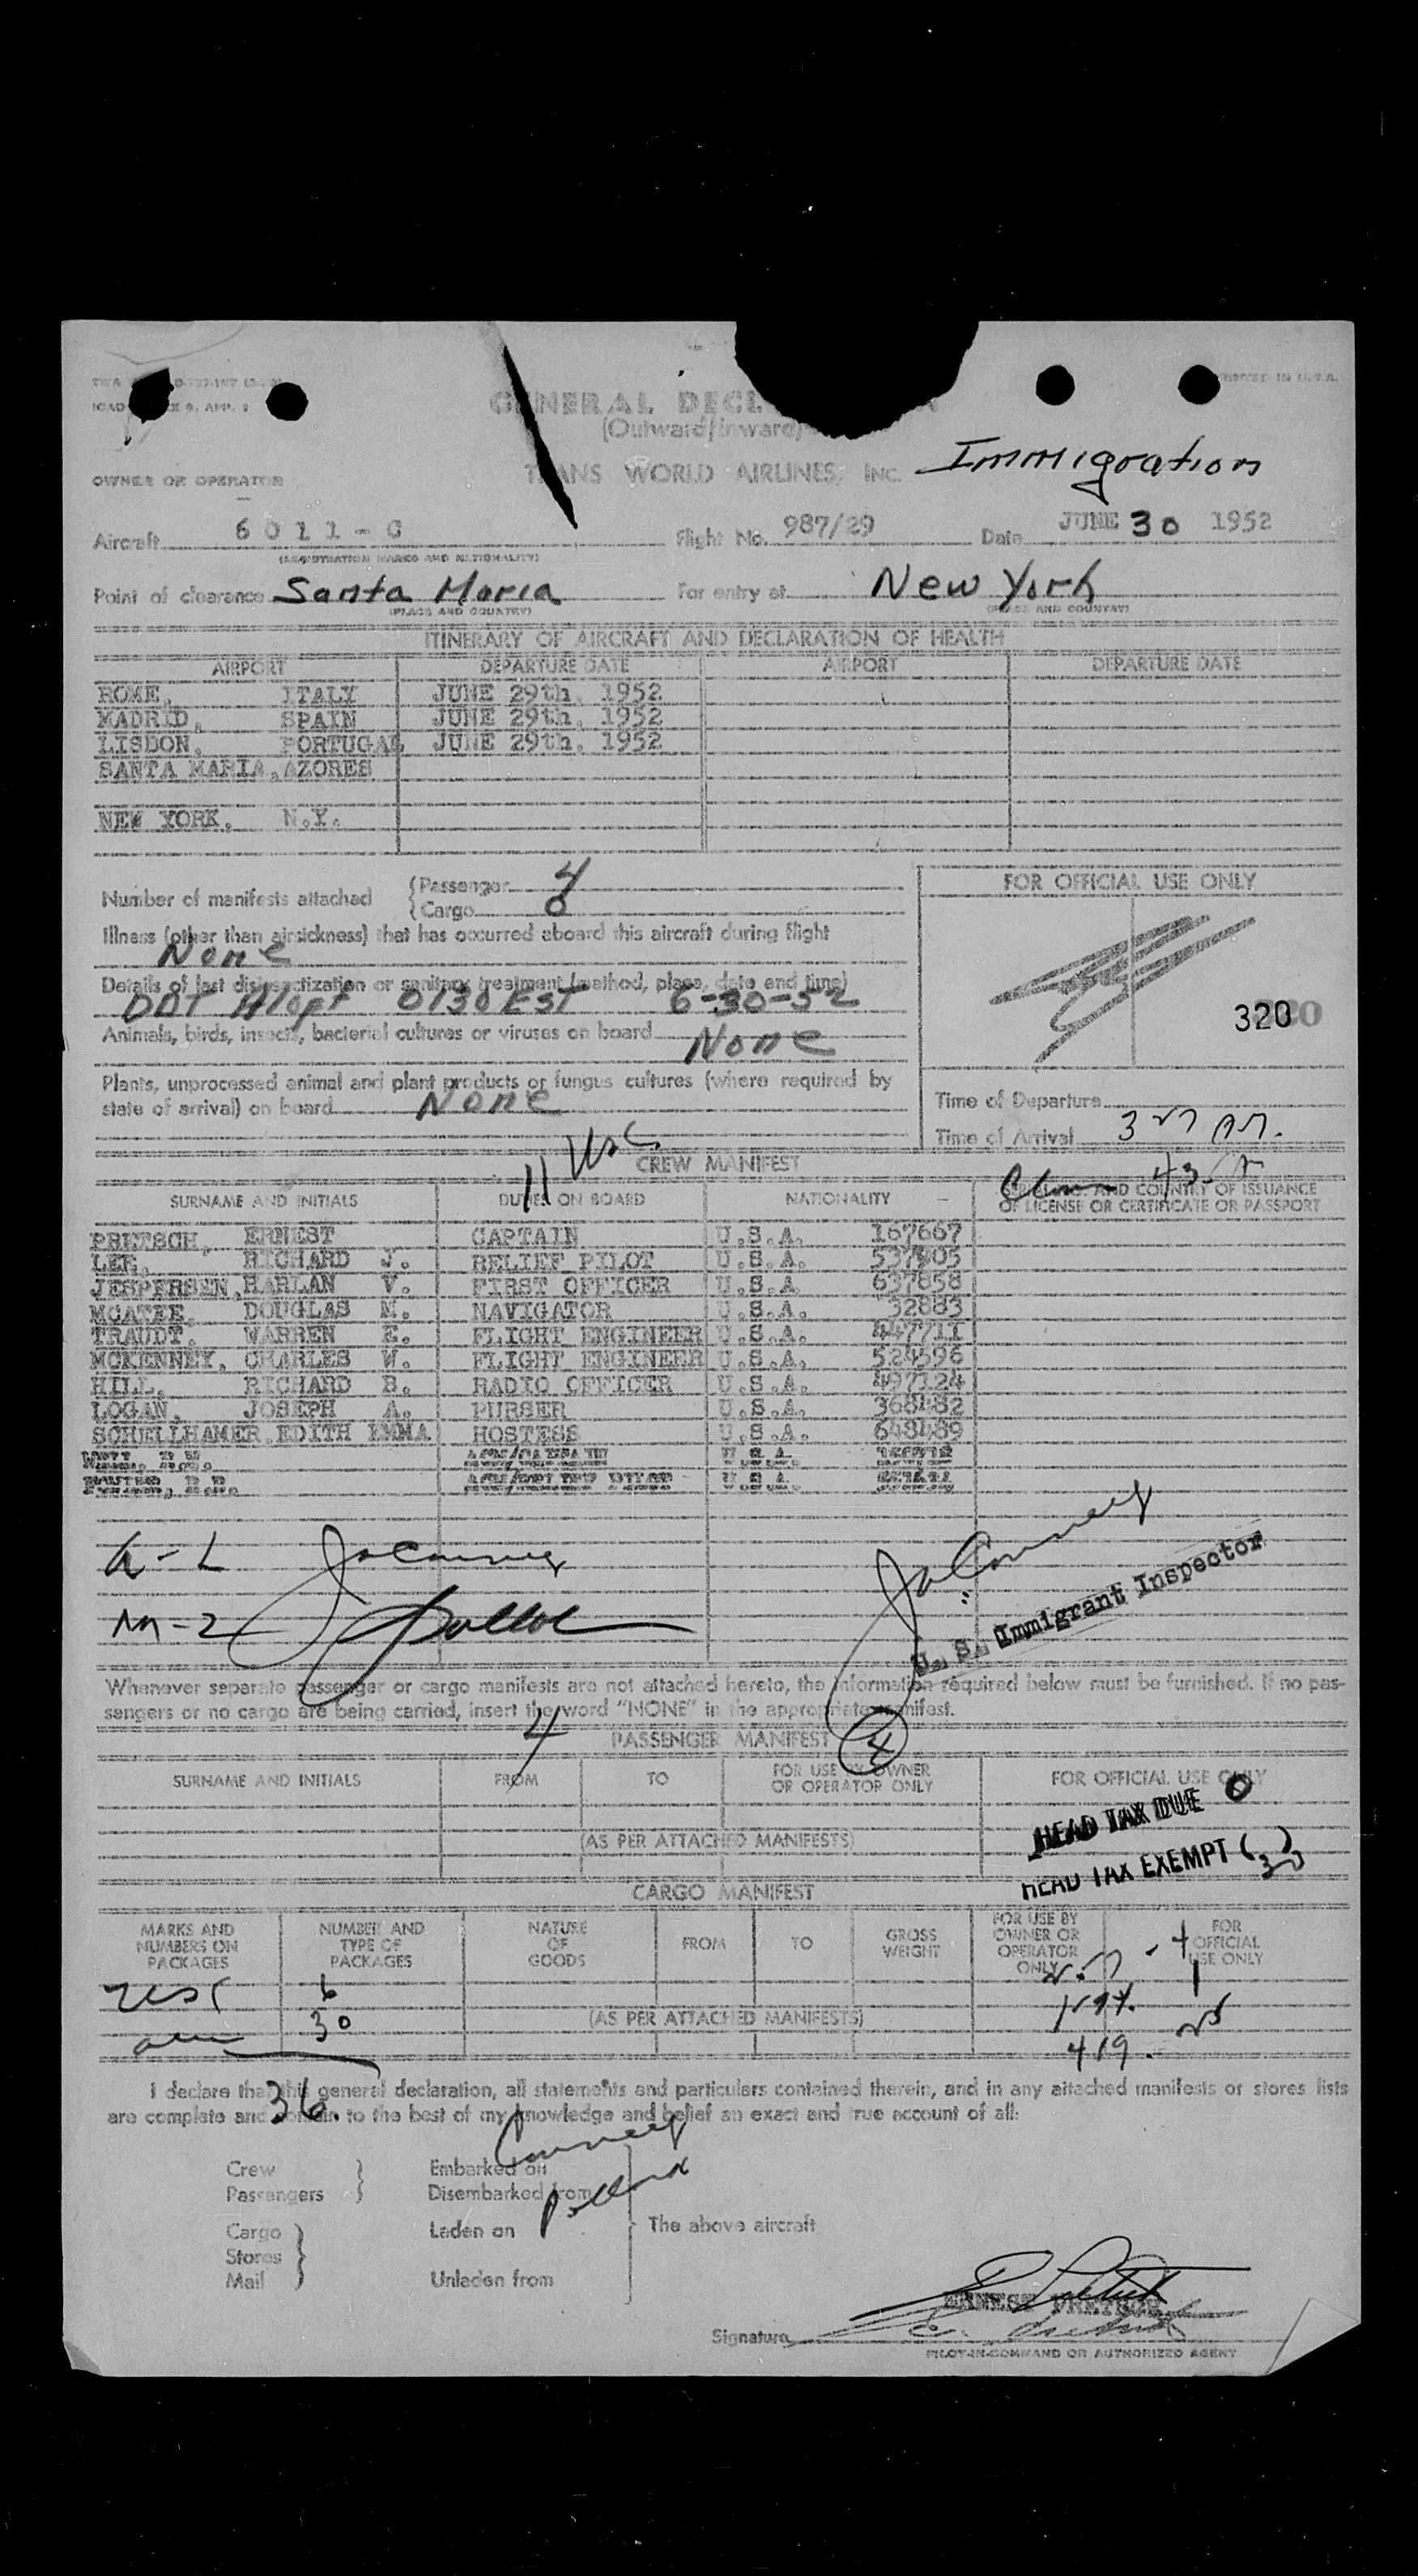 GENERAL DECL
(Outward/Inward)
TRANS WORLD AIRLINES, INC.
Immigration
OWNER OR OPERATOR
Aircraft 6011-C Flight No. 987/29 Date JUNE 30 1952
(REGISTRATION MARKS AND NATIONALITY)
Point of clearance Santa Maria For entry at New York
(PLACE AND COUNTRY) (PLACE AND COUNTRY)
ITINERARY OF AIRCRAFT AND DECLARATION OF HEALTH
AIRPORT DEPARTURE DATE AIRPORT DEPARTURE DATE
ROME, ITALY JUNE 29th, 1952
MADRID, SPAIN JUNE 29th, 1952
LISBON, PORTUGAL JUNE 29th, 1952
SANTA MARIA, AZORES
NEW YORK, N.Y.
Number of manifests attached {Passenger 4
{Cargo 0
FOR OFFICIAL USE ONLY
Illness (other than airsickness) that has occurred aboard this aircraft during flight
None
Details of last disinsectization or sanitary treatment (method, place, date and time)
DDT 0130 EST 6-30-52
320
Animals, birds, insects, bacterial cultures or viruses on board None
Plants, unprocessed animal and plant products or fungus cultures (where required by
state of arrival) on board None
Time of Departure
Time of Arrival
CREW MANIFEST
SURNAME AND INITIALS DUTIES ON BOARD NATIONALITY SERIAL NO. AND COUNTRY OF ISSUANCE
OF LICENSE OR CERTIFICATE OR PASSPORT
PRETSCH, ERNEST CAPTAIN U.S.A. 167667
LER, RICHARD J. RELIEF PILOT U.S.A. 537905
JESPERSEN, HARLAN V. FIRST OFFICER U.S.A. 637858
MCATEE, DOUGLAS M. NAVIGATOR U.S.A. 32883
TRAUDT, WARREN E. FLIGHT ENGINEER U.S.A. 447711
MCKENNEY, CHARLES W. FLIGHT ENGINEER U.S.A. 524596
HILL, RICHARD B. RADIO OFFICER U.S.A. 497124
LOGAN, JOSEPH A. PURSER U.S.A. 368482
SCHELLHAMER, EDITH EMMA HOSTESS U.S.A. 648489
U. S. Immigrant Inspector
Whenever separate passenger or cargo manifests are not attached hereto, the information required below must be furnished. If no pas-
sengers or no cargo are being carried, insert the word "NONE" in the appropriate manifest.
4 PASSENGER MANIFEST 4
SURNAME AND INITIALS FROM TO FOR USE BY OWNER
OR OPERATOR ONLY FOR OFFICIAL USE ONLY
HEAD TAX DUE 0
(AS PER ATTACHED MANIFESTS)
HEAD TAX EXEMPT
CARGO MANIFEST
MARKS AND
NUMBERS ON
PACKAGES NUMBER AND
TYPE OF
PACKAGES NATURE
OF
GOODS FROM TO GROSS
WEIGHT FOR USE BY
OWNER OR
OPERATOR
ONLY FOR
OFFICIAL
USE ONLY
6
30 (AS PER ATTACHED MANIFESTS)
36.
I declare that this general declaration, all statements and particulars contained therein, and in any attached manifests or stores lists
are complete and contain to the best of my knowledge and belief an exact and true account of all:
Crew Embarked on
Passengers Disembarked from
Cargo Laden on The above aircraft
Stores
Mail Unladen from
ERNEST PRETSCH
Signature
PILOT-IN-COMMAND OR AUTHORIZED AGENT